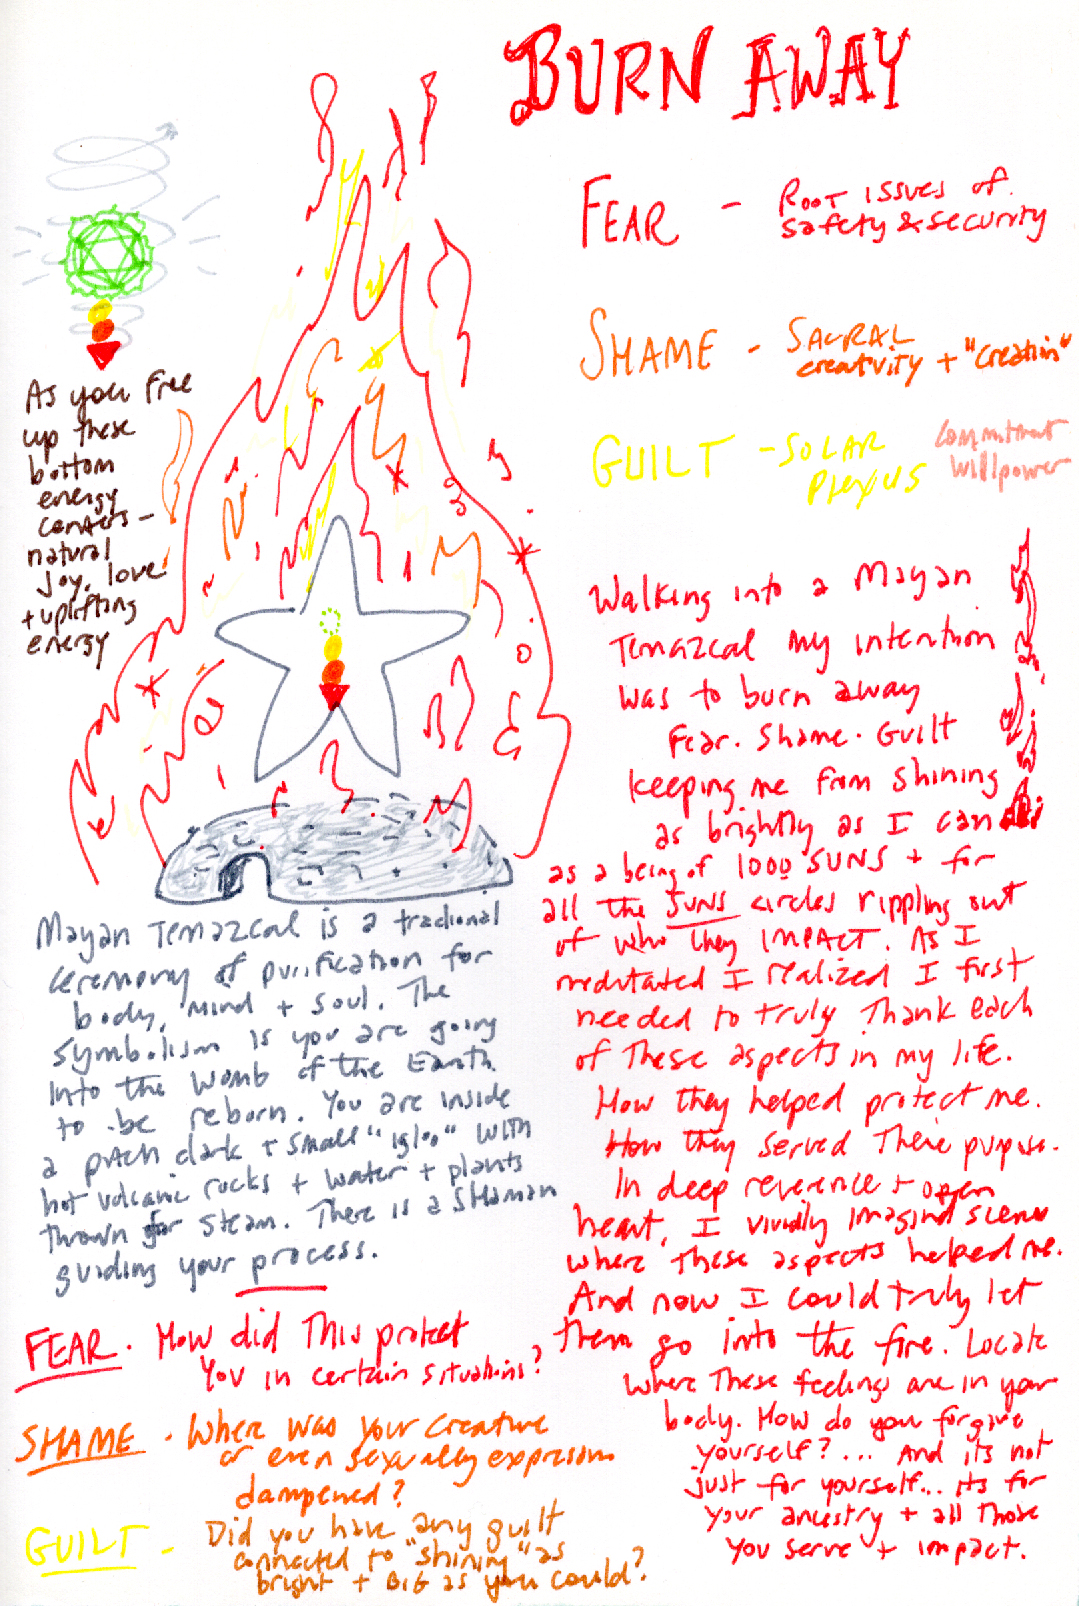 BURN AWAY
FEAR - ROOT ISSUES OF
safety & security
SHAME - SACRAL
creativity + "creation"
GUILT - SOLAR
Plexus
commitment
willpower
As you free
up these
bottom
energy
centers -
natural
joy, love
+ uplifting
energy
Walking into a Mayan
Temazcal my intention
was to burn away
Fear. Shame. Guilt
keeping me from shining
as brightly as I can
as a being of 1000 SUNS + for
all the SUNS circles rippling out
of who they IMPACT. As I
meditated I realized I first
needed to truly Thank each
of These aspects in my life.
How they helped protect me.
How they served There purpose.
In deep reverence + open
heart, I vividly imagined scenes
where These aspects helped me.
And now I could truly let
them go into the fire. Locate
where These feelings are in your
body. How do you forgive
yourself?... And its not
just for yourself... its for
your ancestry + all Those
you serve + impact.
Mayan Temazcal is a tradional
ceremony of purification for
body, mind + soul. The
symbolism is you are going
into the womb of the Earth
to be reborn. You are inside
a pitch dark + small "igloo" with
hot volcanic rocks + water + plants
thrown for steam. There is a SHaman
guiding your process.
FEAR. How did This protect
you in certain situations?
SHAME. Where was your creative
or even sexually expression
dampened?
GUILT - Did you have any guilt
connected to "shining" as
bright + BIG as you could?